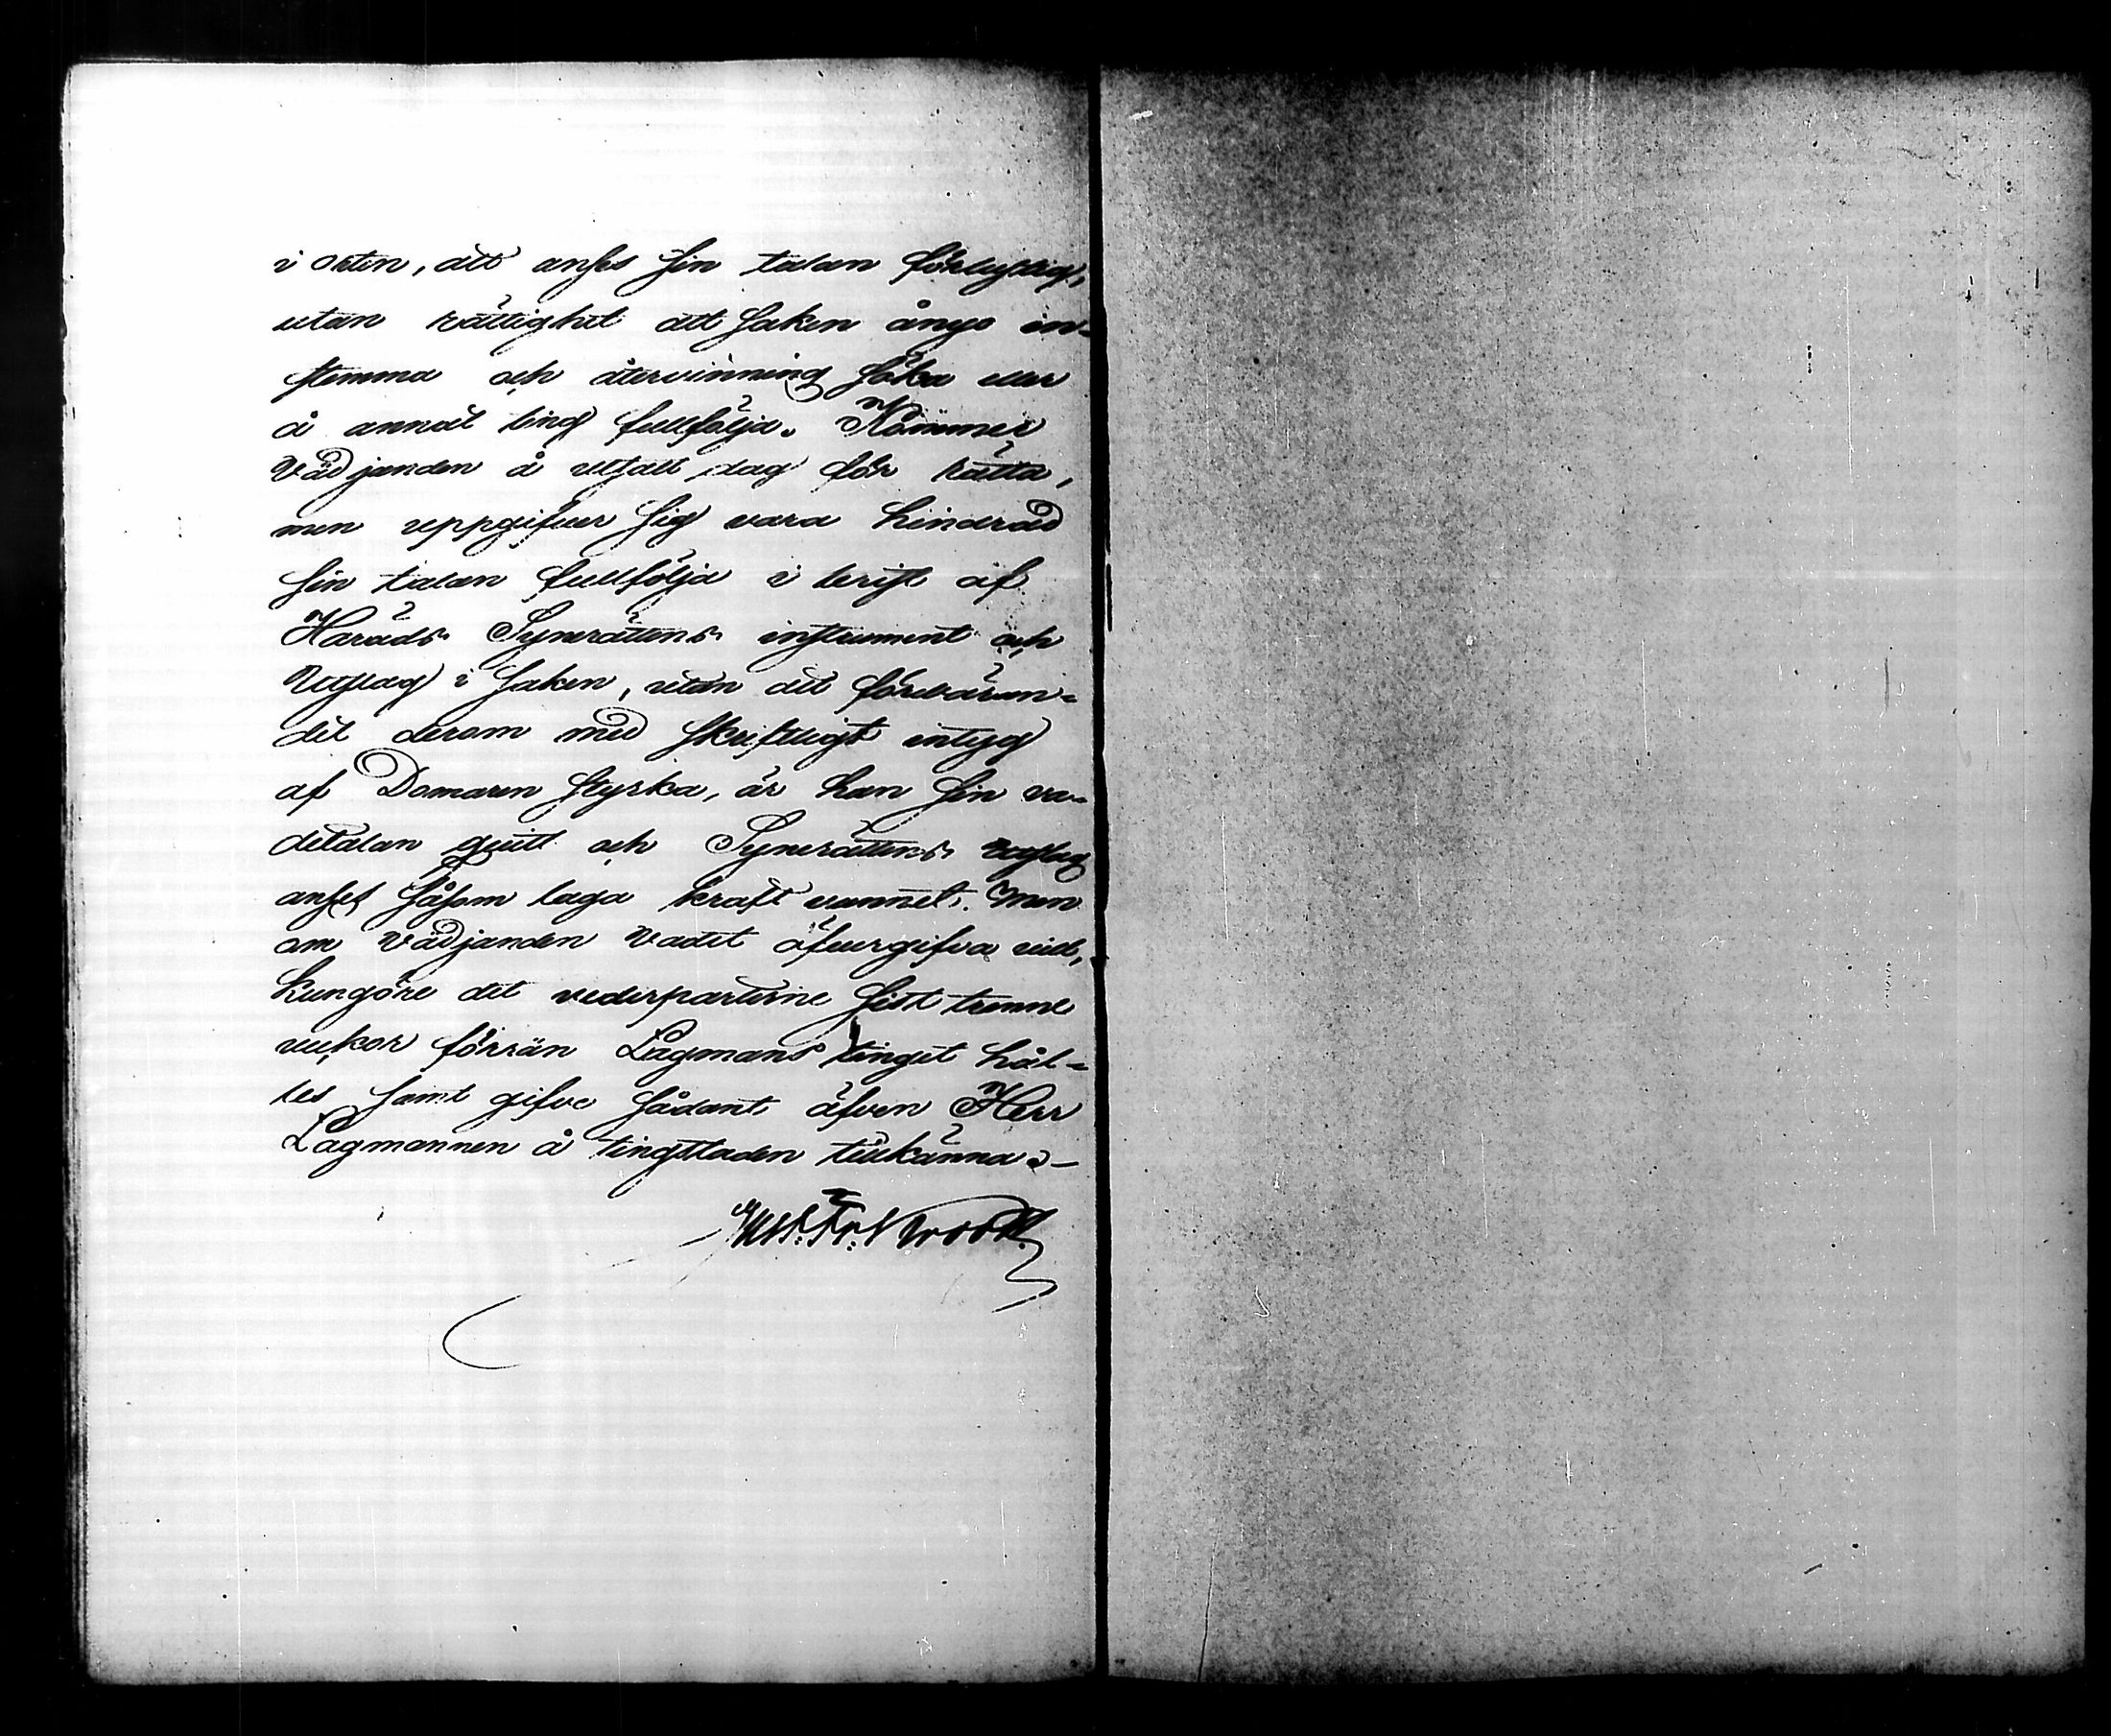 i orten, att anses sin talan förlustig,
utan rättighet att saken ånyo in-
stemma och återvinning söka eller
å annat ting fullfölja. Kommer
Vädjanden å utsatt dag för rätta,
men uppgifver sig vara hindrad
sin talan fullfölja i brist af
Härads Synerättens instrument och
Utslag i saken, utan att förevarан-
det derom med skriftligt intyg
af Domaren styrka, är han sin va-
detalan quitt och Synerättens utslag
anses såsom laga kraft vunnet. Men
om Vädjanden Vadet öfvergifva vill,
kungöre det vederparterne sist trenne
veckor förrän Lagmans tinget hål-
les samt gifve sådant äfven Herr
Lagmannen å tingstaden tillkänna.